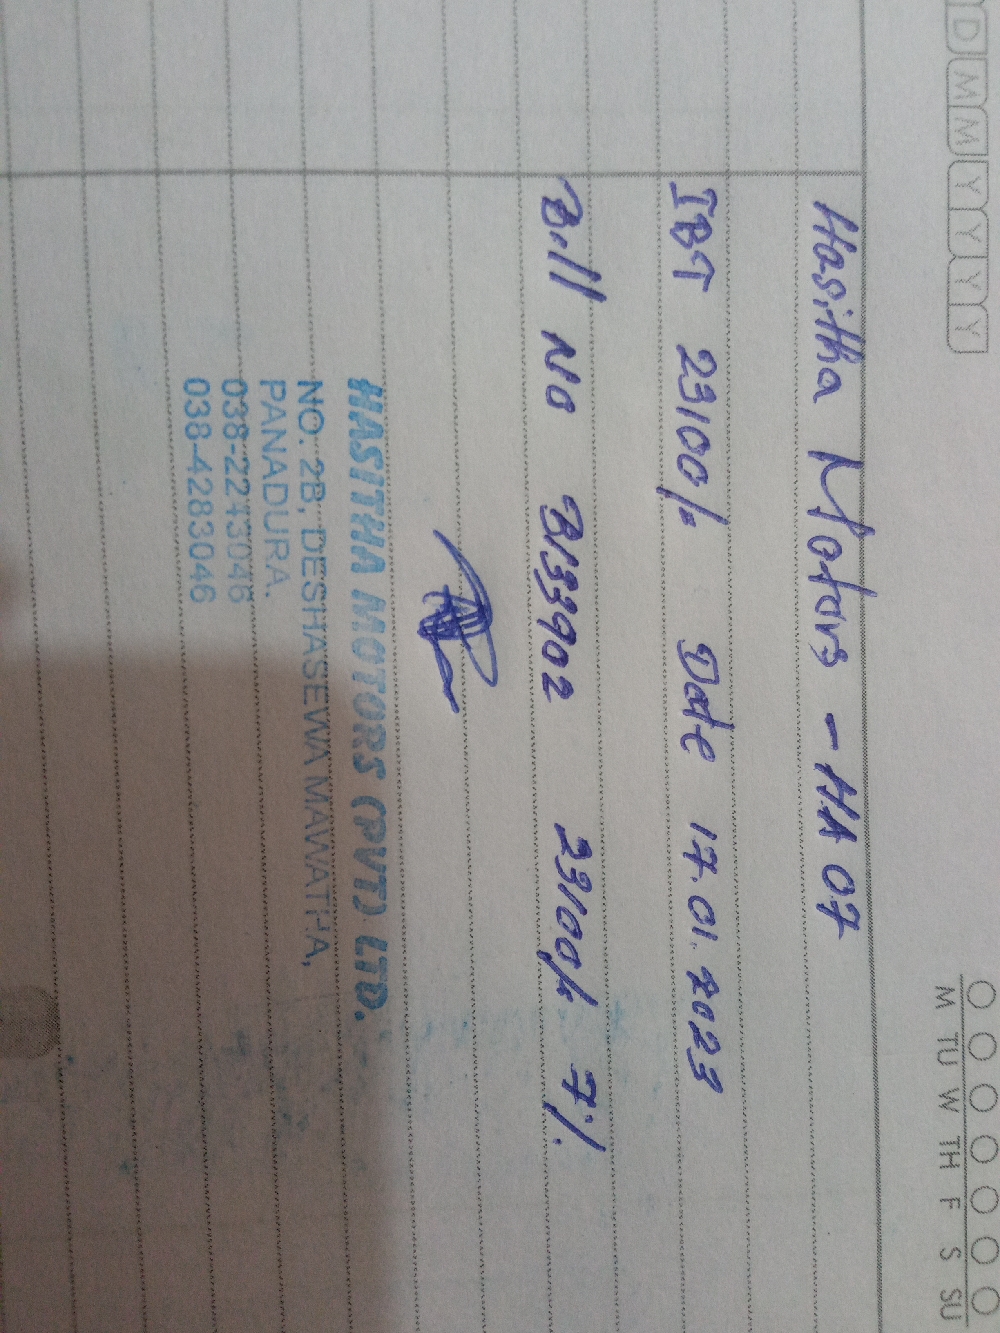 D M M Y Y Y Y
M TU W TH F S SU
Hasitha Motors - HA 07
IBT 23100/- Date 17.01.2023
Bill No B133902 23100/- 7%
HASITHA MOTORS (PVT) LTD.
NO. 2B, DESHASEWA MAWATHA,
PANADURA.
038-2243046
038-4283046